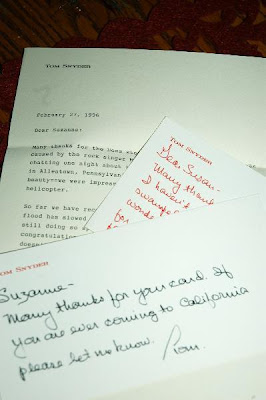 TOM SNYDER
February 27, 1996
Dear Suzanne:
Many thanks for the
caused by the rock singer
chatting one night about
in Allentown, Pennsylvania
beauty--we were impress
helicopter.
So far we have rec
flood has slowed
still doing so
congratulation
TOM SNYDER
Dear Suzan-
Many thank
I haven't
TOM SNYDER
Suzanne-
Many thanks for your card. If
you are ever coming to California
please let me know. Tom.